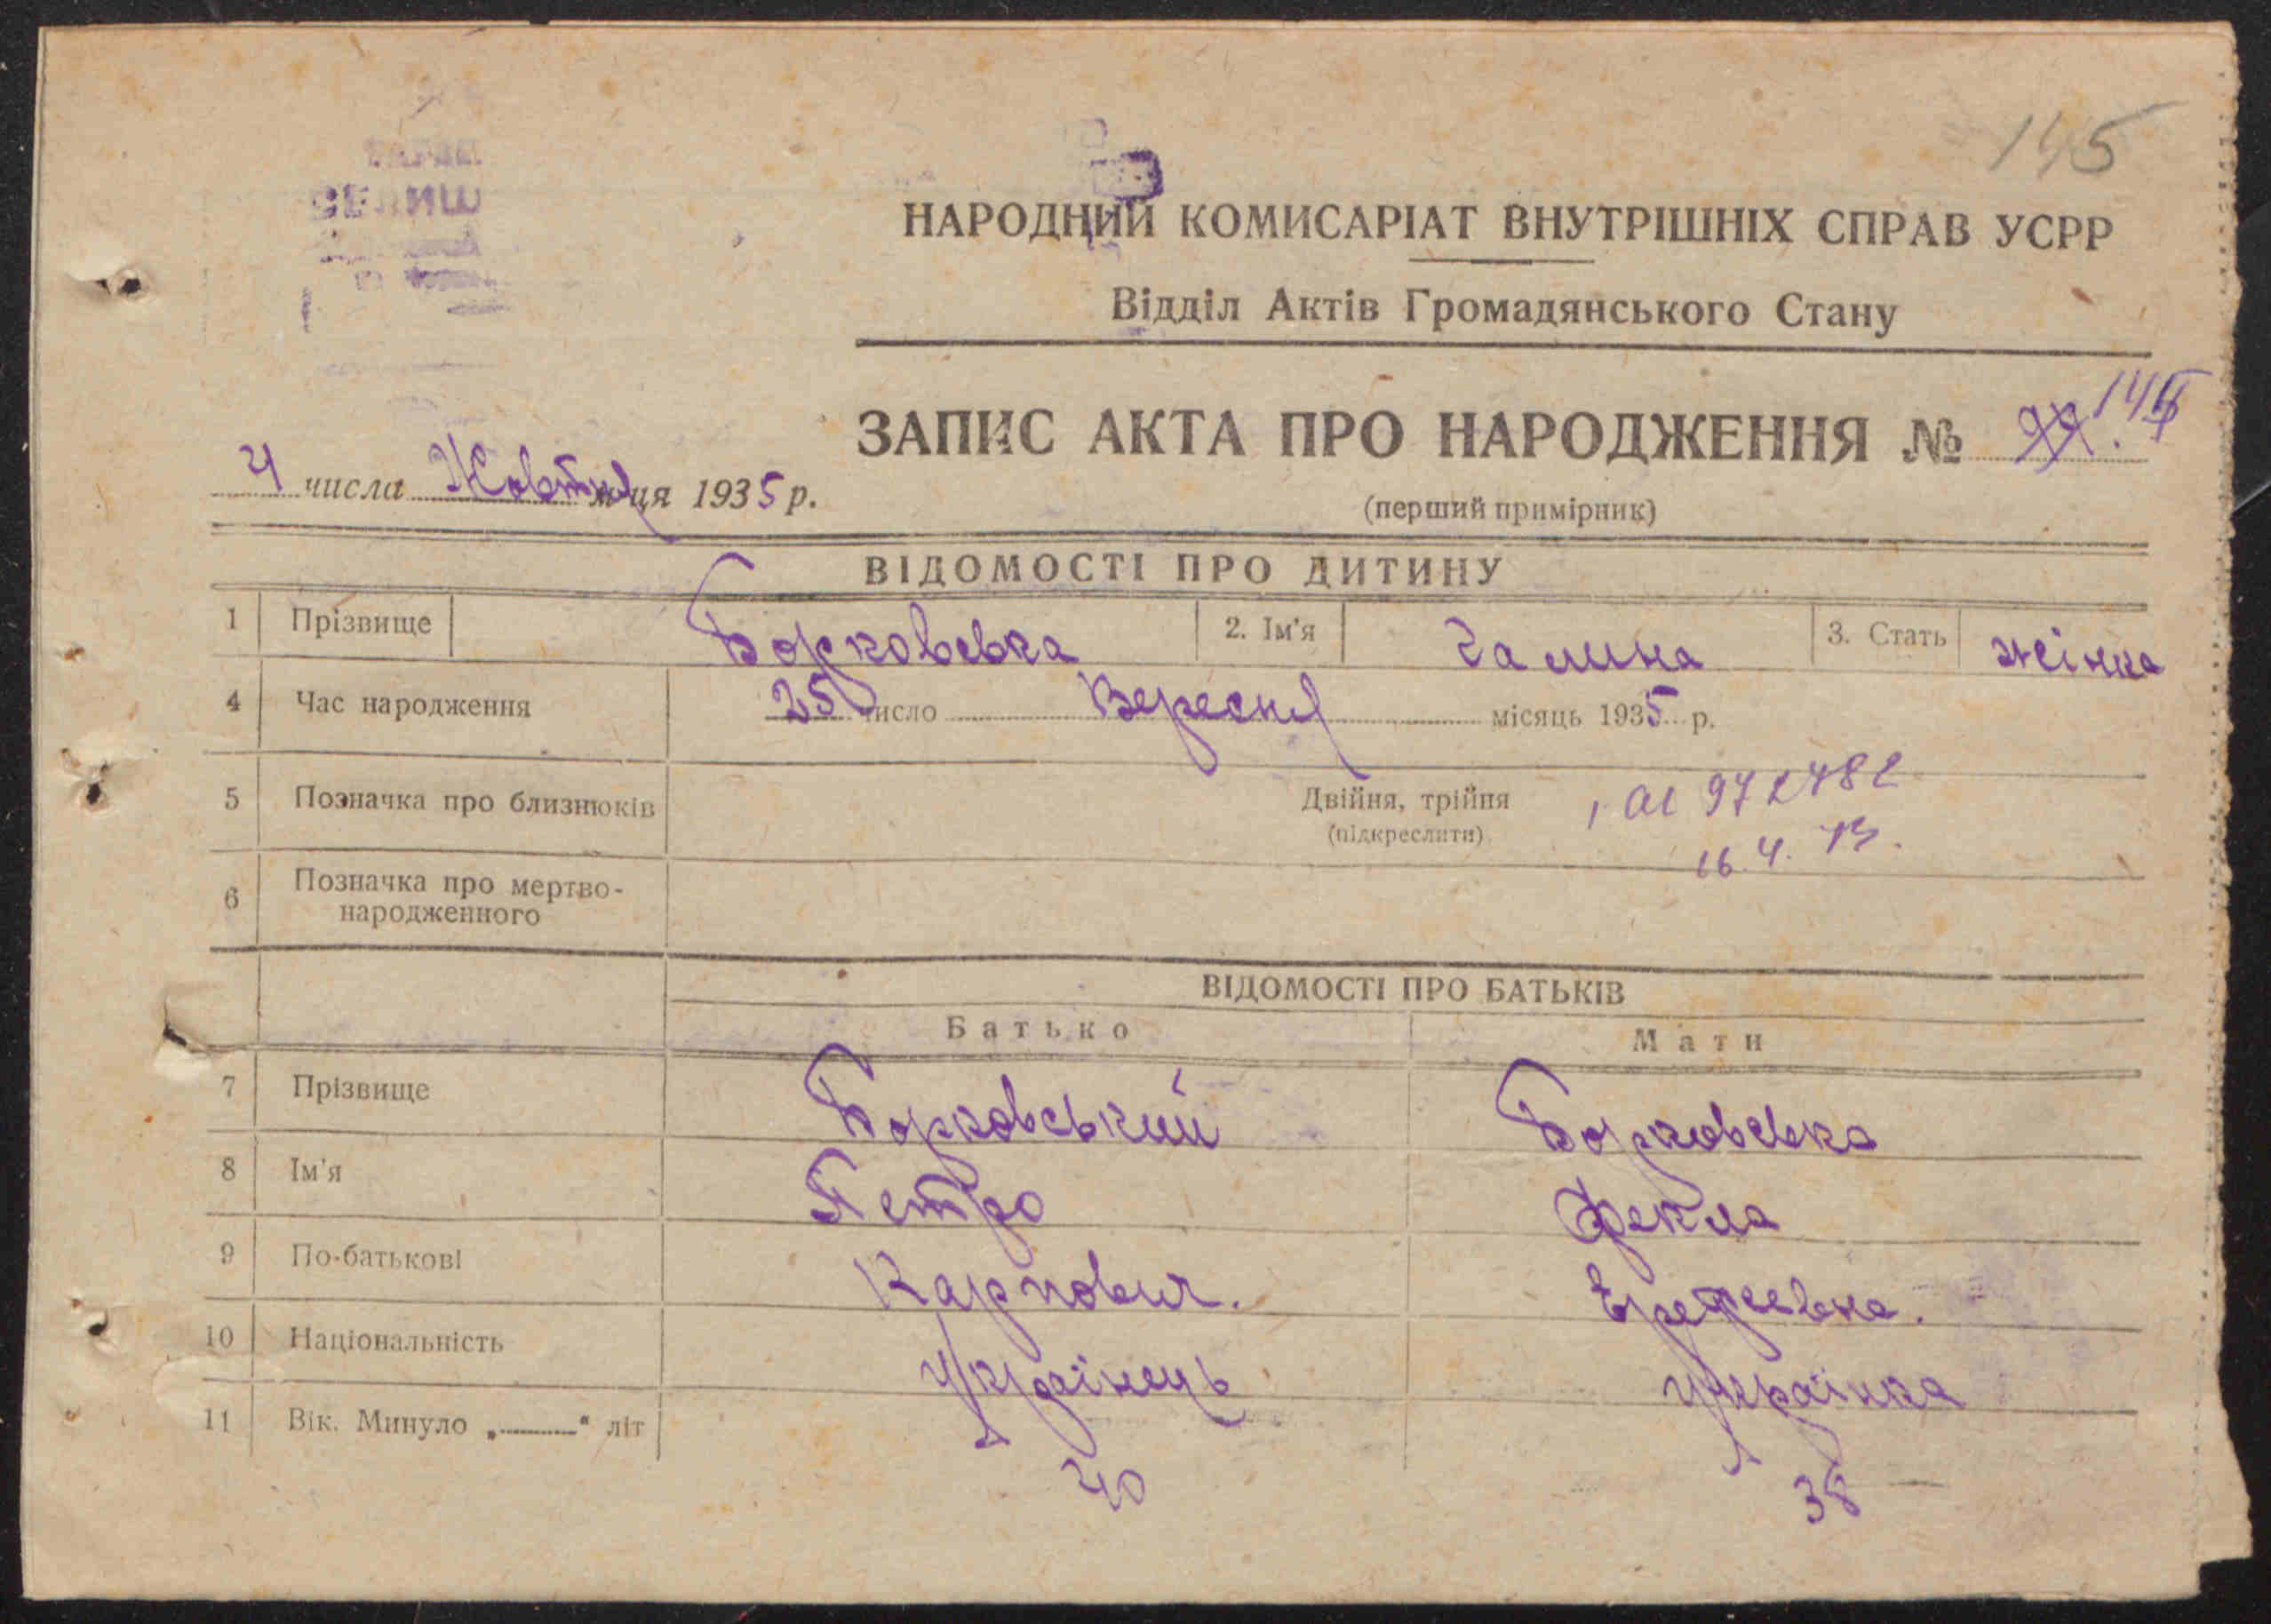 145
НАРОДНИЙ КОМИСАРІАТ ВНУТРІШНІХ СПРАВ УСРР
Відділ Актів Громадянського Стану
ЗАПИС АКТА ПРО НАРОДЖЕННЯ №
4 числа Жовтня м-ця 1935 р.
(перший примірник)
ВІДОМОСТІ ПРО ДИТИНУ
1 Прізвище Борковська 2. Ім'я Галина 3. Стать жінка
4 Час народження 25 число Вересня місяць 1935 р.
5 Позначка про близнюків Двійня, трійня
(підкреслити)
16.4.
6 Позначка про мертво-
народженного
ВІДОМОСТІ ПРО БАТЬКІВ
Батько Мати
7 Прізвище Борковський Борковська
8 Ім'я Петро Фекла
9 По-батькові Карпович.
10 Національність Українець українка
11 Вік. Минуло „ “ літ
40 38